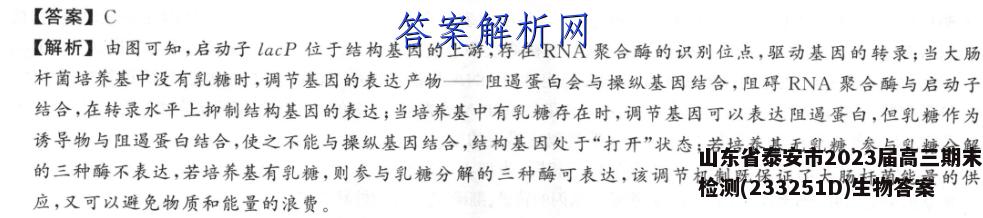 【答案】C
答案解析网
【解析】由图可知,启动子 lacP 位于结构基因的上游,存在 RNA 聚合酶的识别位点,驱动基因的转录;当大肠
杆菌培养基中没有乳糖时,调节基因的表达产物——阻遏蛋白会与操纵基因结合,阻碍 RNA 聚合酶与启动子
结合,在转录水平上抑制结构基因的表达;当培养基中有乳糖存在时,调节基因可以表达阻遏蛋白,但乳糖作为
诱导物与阻遏蛋白结合,使之不能与操纵基因结合,结构基因处于“打开”状态;若培养基无乳糖,参与乳糖分解
的三种酶不表达,若培养基有乳糖,则参与乳糖分解的三种酶可表达,该调节机制既保证了大肠杆菌能量的供
应,又可以避免物质和能量的浪费。
山东省泰安市2023届高三期末
检测(233251D)生物答案